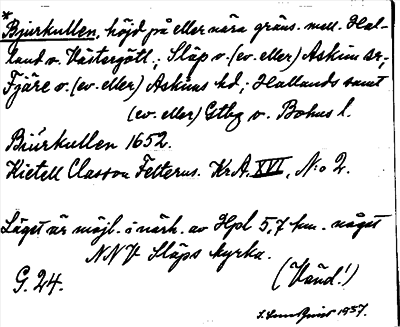 *Bjurkullen, höjd på eller nära gräns. mell. Hal-
land o. Västergötl.; Släp o. (ev. eller) Askim sr,
Fjäre o. (ev. eller) Askims hd; Hallands samt
(ev. eller) Gtbg o. Bohus l.
Biürkullen 1652.
Kietell Classon Felterus. KrA. XVI, N:o 2.
Läget är möjl. i närh. av Hpl 5,7 km. något
NNV Släps kyrka.
G. 24.
(Vänd!)
1937.